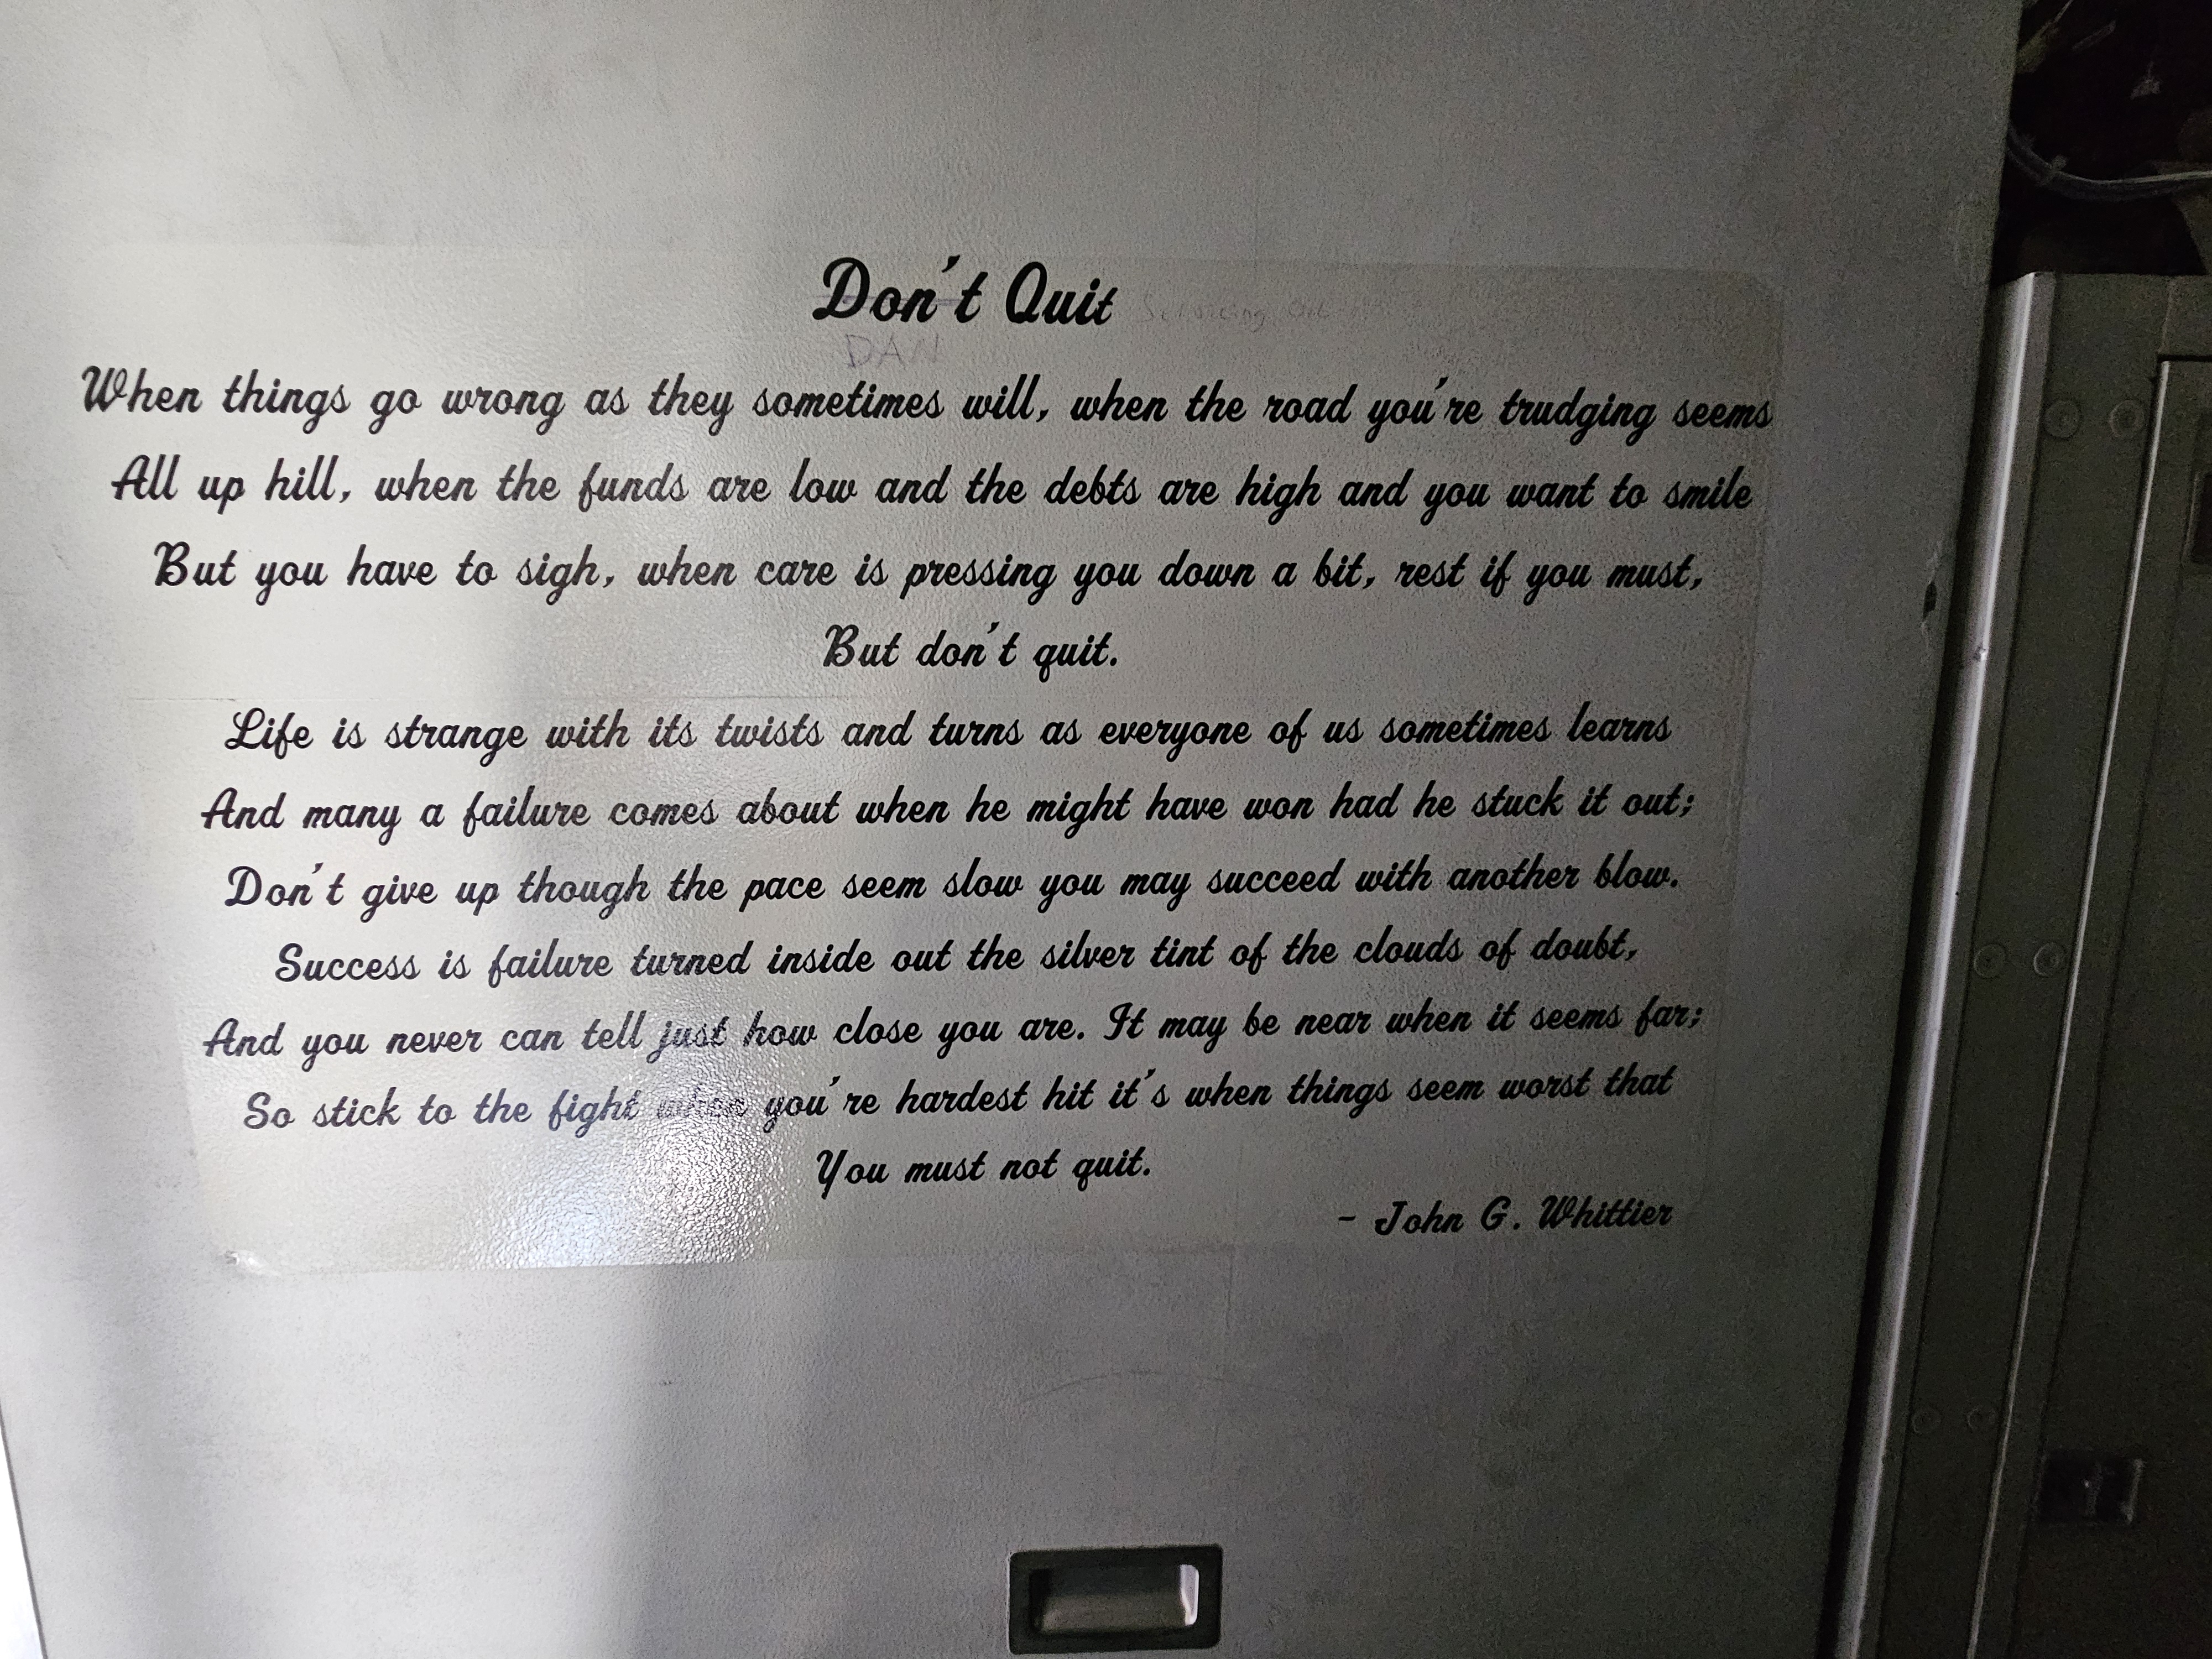 Don't Quit
DAN
When things go wrong as they sometimes will, when the road you're trudging seems
All up hill, when the funds are low and the debts are high and you want to smile
But you have to sigh, when care is pressing you down a bit, rest if you must,
But don't quit.
Life is strange with its twists and turns as everyone of us sometimes learns
And many a failure comes about when he might have won had he stuck it out;
Don't give up though the pace seem slow you may succeed with another blow.
Success is failure turned inside out the silver tint of the clouds of doubt,
And you never can tell just how close you are. It may be near when it seems far;
So stick to the fight when you're hardest hit it's when things seem worst that
You must not quit.
- John G. Whittier